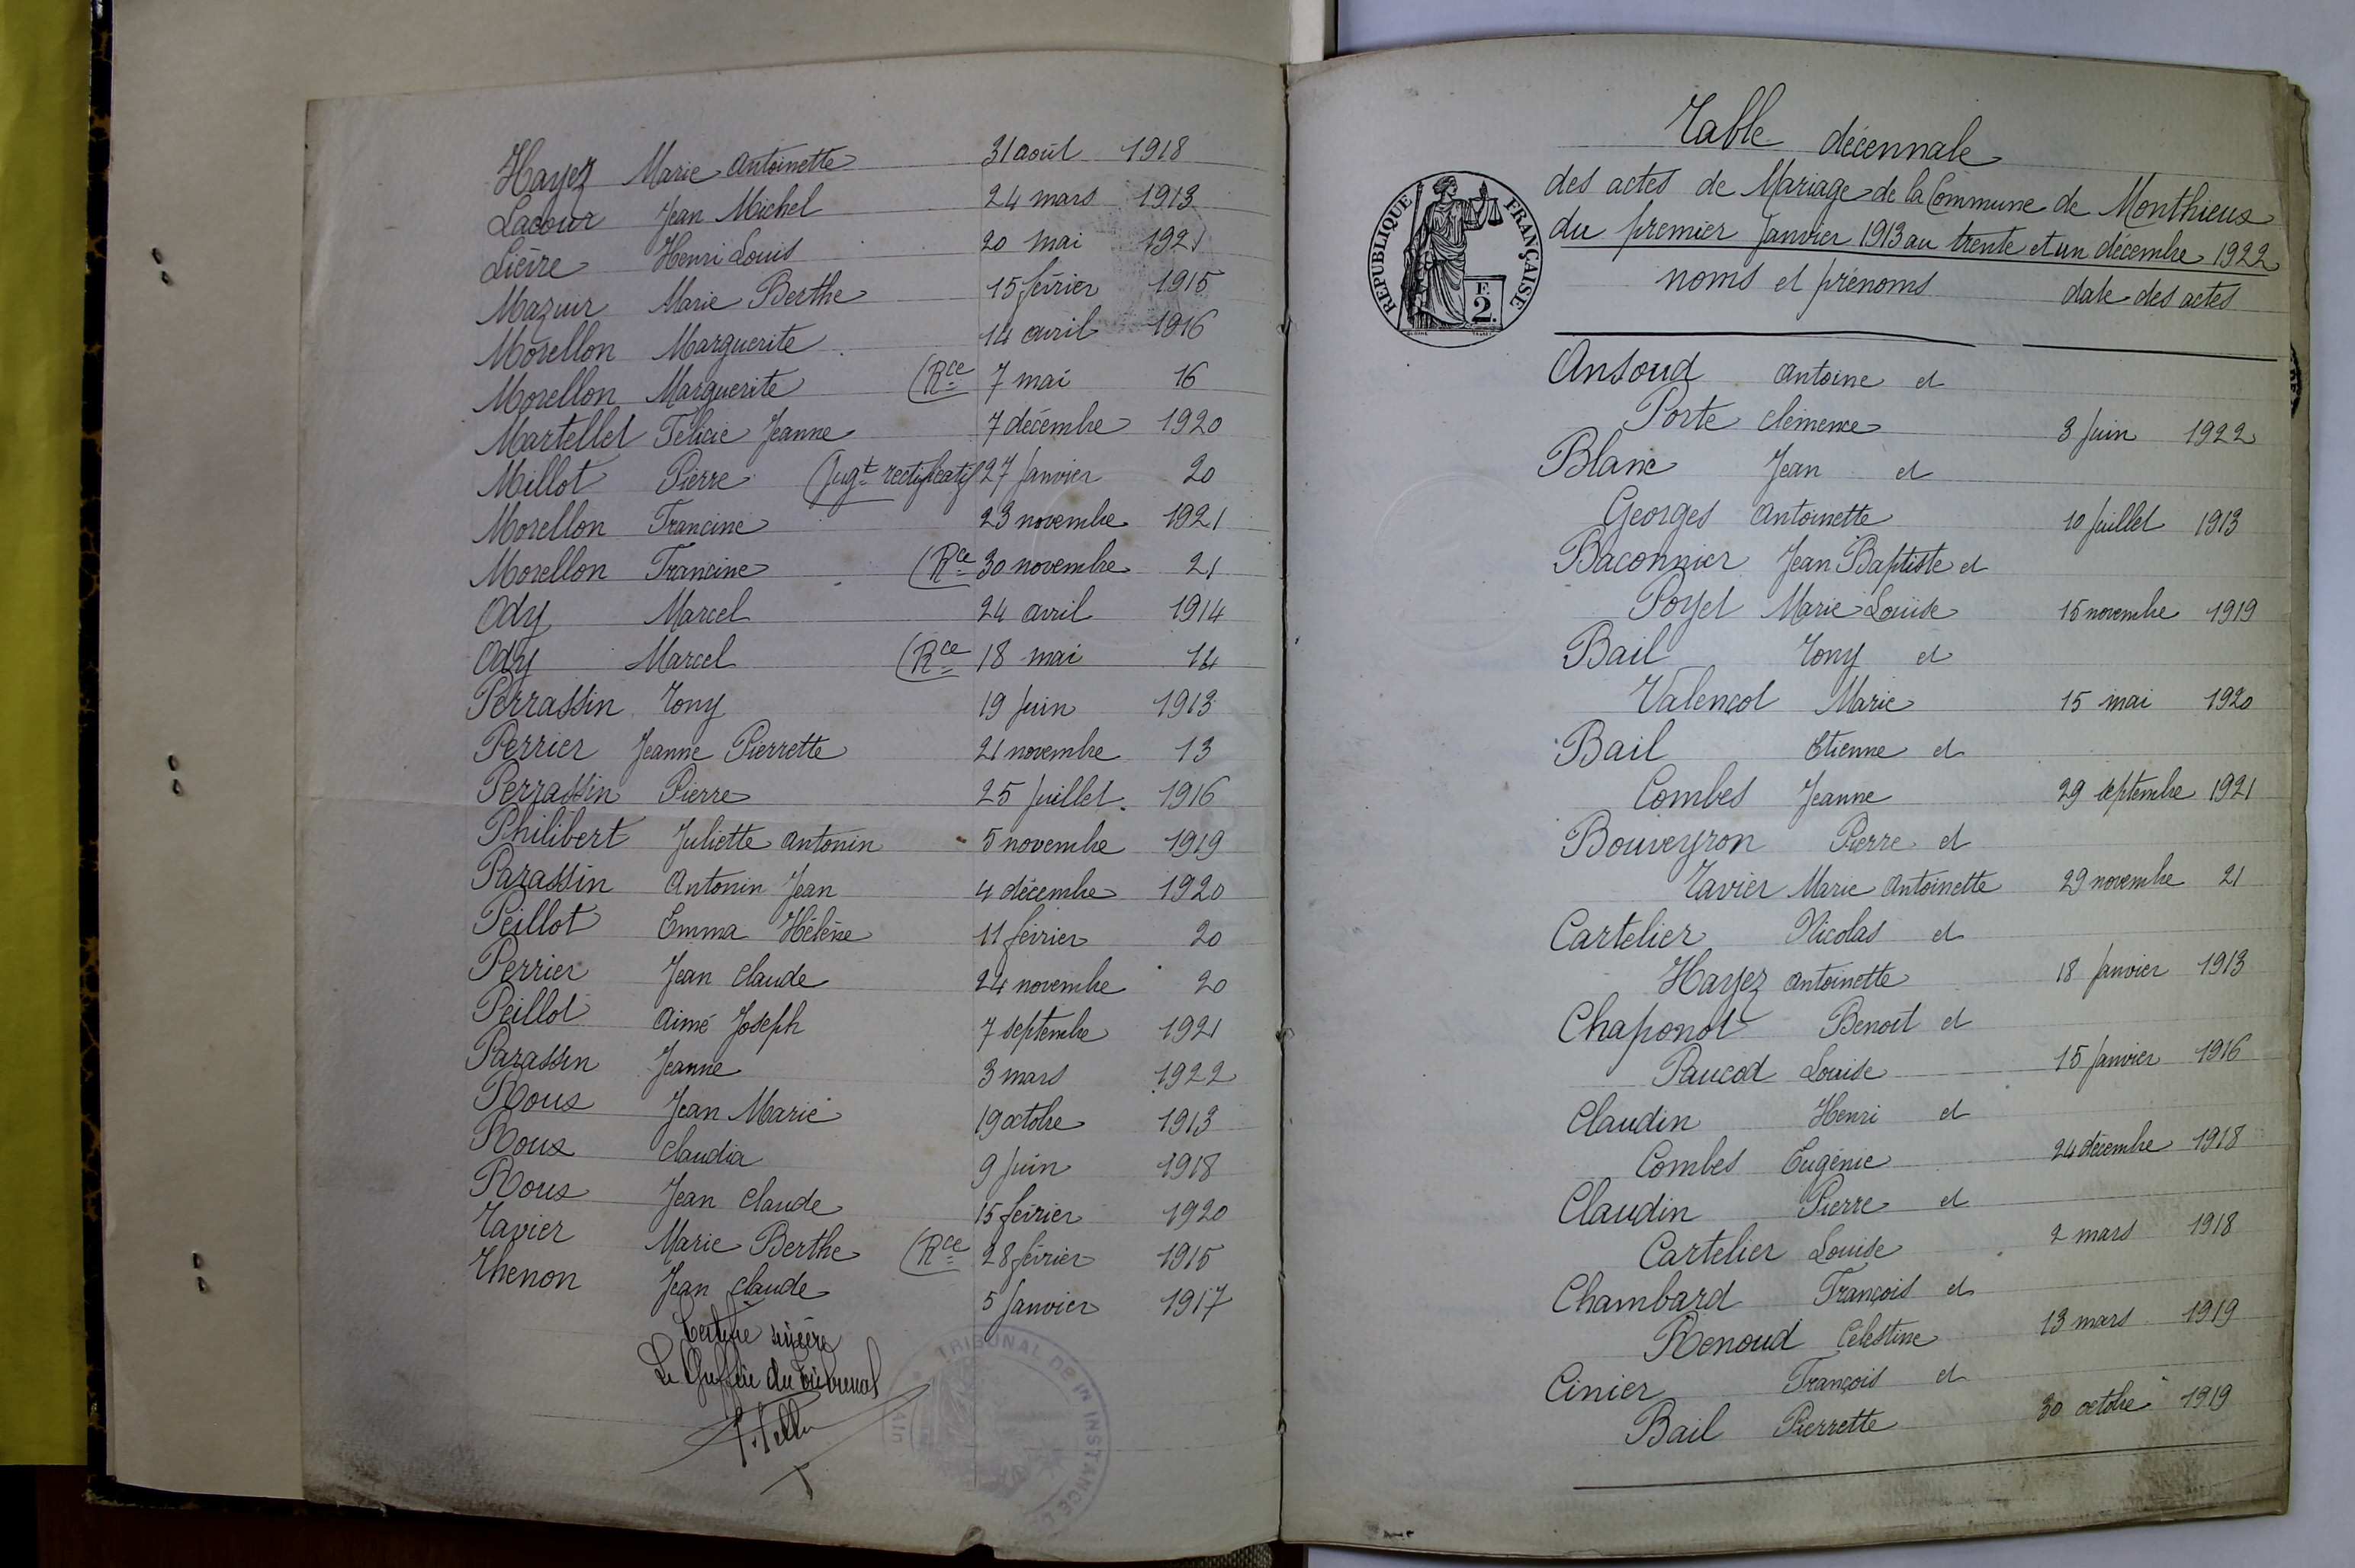 Hayez Marie Antoinette 31 août 1918
Lacour Jean Michel 24 mars 1913
Lièvre Henri Louis 20 mai 1921
Mazuir Marie Berthe 15 février 1915
Morellon Marguerite 14 avril 1916
Morellon Marguerite (Rce 7 mai 16
Martellet Félicie Jeanne 7 décembre 1920
Millot Pierre (Jugt rectificatif 27 Janvier 20
Morellon Francine 23 novembre 1921
Morellon Francine (Rce 30 novembre 21
Ody Marcel 24 avril 1914
Ody Marcel (Rce 18 mai 14
Perrassin Tony 19 Juin 1913
Perrier Jeanne Pierrette 21 novembre 13
Perrassin Pierre 25 Juillet 1916
Philibert Juliette Antonin 5 novembre 1919
Parassin Antonin Jean 4 décembre 1920
Peillot Emma Hélène 11 février 20
Perrier Jean Claude 24 novembre 20
Peillot Aimé Joseph 7 septembre 1921
Parassin Jeanne 3 mars 1922
Roux Jean Marie 19 octobre 1913
Roux Claudia 9 Juin 1918
Roux Jean Claude 15 février 1920
Tavier Marie Berthe (Rce 28 février 1915
Thenon Jean Claude 5 Janvier 1917
Certifié sincère
Le Greffier du tribunal
TRIBUNAL DE 1re INSTANCE
AIN
Table décennale
des actes de Mariage de la Commune de Monthieux
du premier Janvier 1913 au trente et un décembre 1922
RÉPUBLIQUE FRANÇAISE
F.
2.
noms et prénoms date des actes
Ansoud Antoine et
Porte Clémence 3 Juin 1922
Blanc Jean et
Georges Antoinette 10 Juillet 1913
Baconnier Jean Baptiste et
Poyet Marie Louise 15 novembre 1919
Bail Tony et
Valençot Marie 15 mai 1920
Bail Etienne et
Combes Jeanne 29 septembre 1921
Bouveyron Pierre et
Tavier Marie Antoinette 29 novembre 21
Cartelier Nicolas et
Hayez Antoinette 18 Janvier 1913
Chaponot Benoit et
Paucod Louise 15 Janvier 1916
Claudin Henri et
Combes Eugénie 24 décembre 1918
Claudin Pierre et
Cartelier Louise 2 mars 1918
Chambard François et
Renoud Célestine 13 mars 1919
Cinier François et
Bail Pierrette 30 octobre 1919